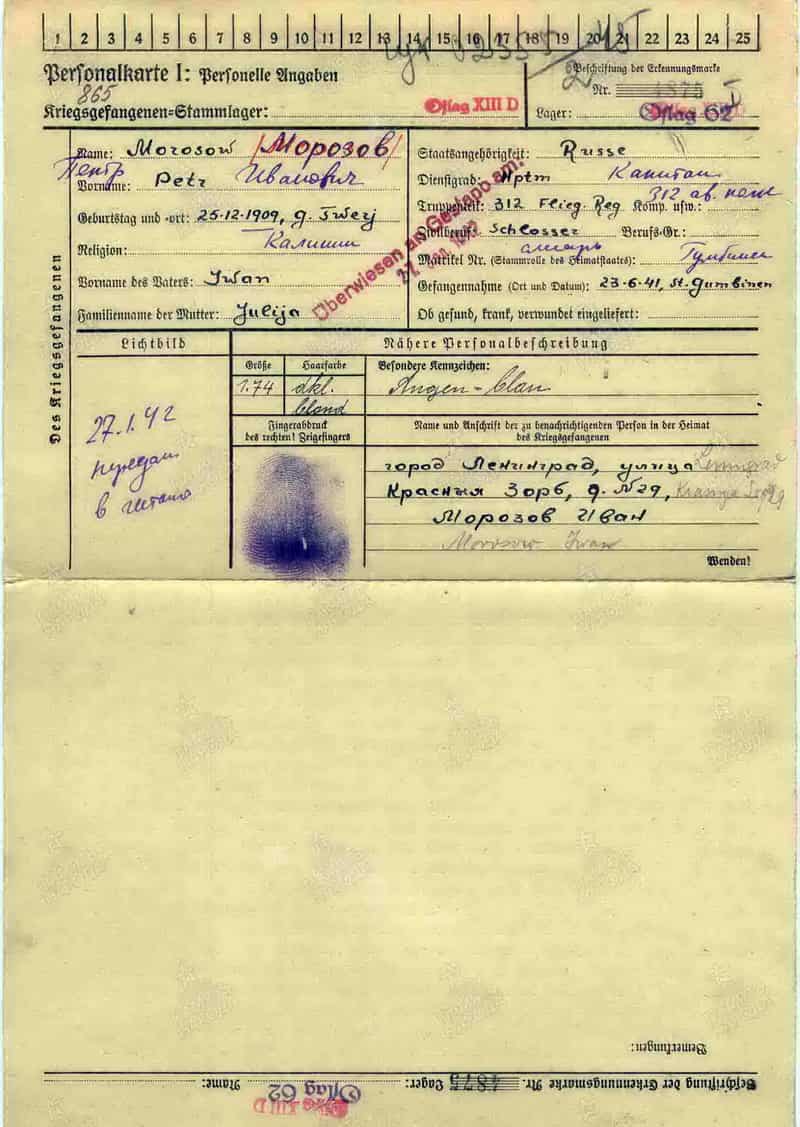 1 2 3 4 5 6 7 8 9 10 11 12 13 14 15 16 17 18 19 20 21 22 23 24 25
Personalkarte I: Personelle Angaben
Beschriftung der Erkennungsmarke
865
Nr. 4875 I
Kriegsgefangenen=Stammlager: Oflag XIII D
Lager: Oflag 62
Des Kriegsgefangenen
Name: Morosow /Морозов/
Петр
Vorname: Petr Иванович
Geburtstag und -ort: 25.12.1909, g. Twerj
Калинин
Religion:
Vorname des Vaters: Iwan
Familienname der Mutter: Julija
Überwiesen an Gestapo am:
Staatsangehörigkeit: Russe
Dienstgrad: Hptm Капитан
312 ав. полк
Truppenteil: 312 Flieg. Reg Komp. usw.:
Zivilberuf: Schlosser Berufs-Gr.:
слесарь
Matrikel Nr. (Stammrolle des Heimatstaates):
Gefangennahme (Ort und Datum): 23.6.41, St. Gumbinen
Ob gesund, krank, verwundet eingeliefert:
Lichtbild
Nähere Personalbeschreibung
Größe Haarfarbe Besondere Kennzeichen:
1.74 dkl. blond Augen-blau
27.1.42
передан
в гестапо
Fingerabdruck
des rechten! Zeigefingers
Name und Anschrift der zu benachrichtigenden Person in der Heimat
des Kriegsgefangenen
город Ленинград, улица Leningrad
Красных Зорь, д. №29,
Морозов Иван
Morosow Iwan
Wenden!
Bemerkungen:
Beschriftung der Erkennungsmarke Nr. 4875 Lager: Oflag 62 Name:
Oflag XIII D